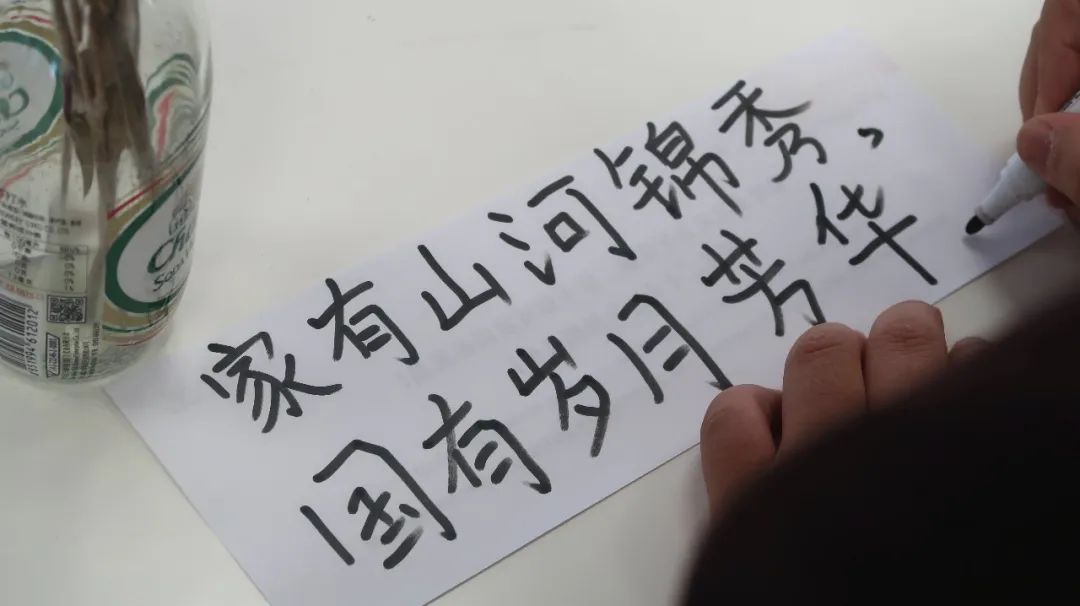 家有山河锦秀,
国有岁月芳华
Chang
Soda
6951994612012